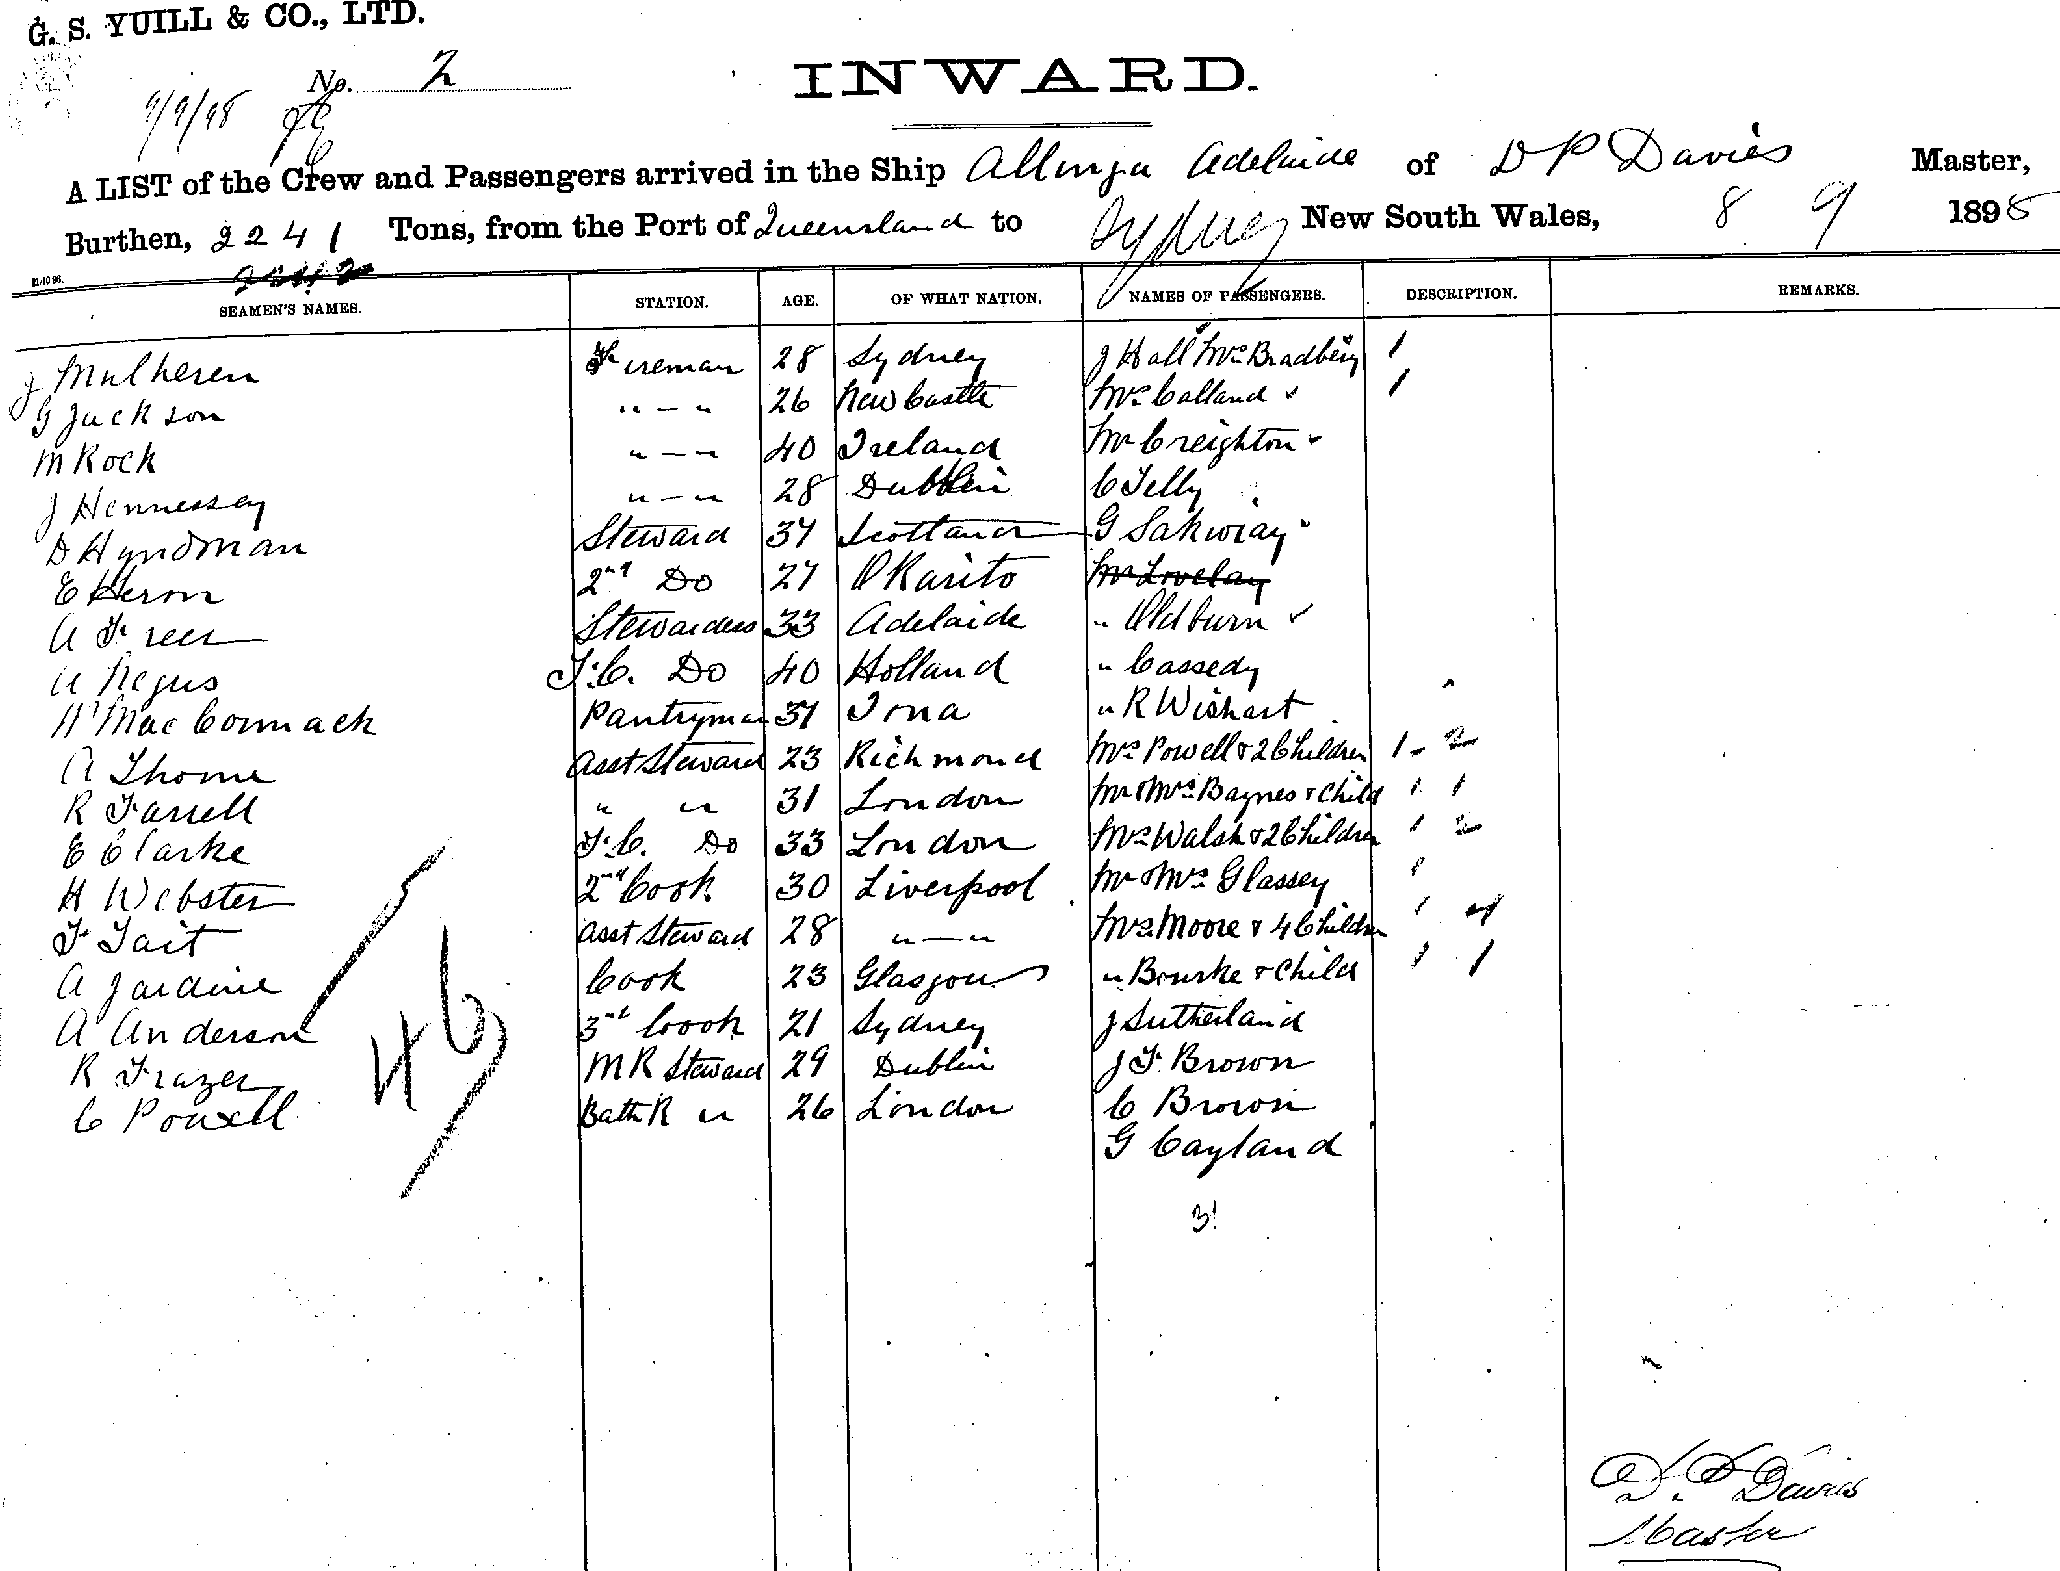 G. S. YUILL & CO., LTD.
No. 2
9/9/98
INWARD.
A LIST of the Crew and Passengers arrived in the Ship Allinga Adelaide of D P Davies Master,
Burthen, 2241 Tons, from the Port of Queensland to Sydney New South Wales, 8 9 1898
SEAMEN'S NAMES. STATION. AGE. OF WHAT NATION. NAMES OF PASSENGERS. DESCRIPTION. REMARKS.
J Mulheren Fireman 28 Sydney J Hall Mrs Bradbery 1
G Jackson " — " 26 New Castle Mrs Calland 1
M Rock " — " 40 Ireland Mr Creighton
J Hennessey " — " 28 Dublin C Telly
D Hyndman Steward 37 Scotland G Sakwray
E Heron 2nd Do 27 O Karito Mr Lovelay
A Freer Stewardess 33 Adelaide " Oldburn
A Negus F.C. Do 40 Holland " Cassedy
H MacCormack Pantryman 37 Iona " R Wishart
A Thorne Asst Steward 23 Richmond Mrs Powell & 2 Children 1 - 2
R Farrell " " 31 London Mr & Mrs Baynes & Child 1 1
E Clarke F.C. Do 33 London Mrs Walsh & 2 Children 1 2
H Webster 2nd Cook 30 Liverpool Mr & Mrs Glassey 1
F Tait Asst Steward 28 " — " Mrs Moore & 4 Children 1 4
A Jardine Cook 23 Glasgow " Bourke & Child 1 1
A Anderson 3rd Cook 21 Sydney J Sutherland
R Frazer M R Steward 29 Dublin J F. Brown
C Powell Bath R " 26 London C Brown
G Cayland
46
31
D. P Davies
Master